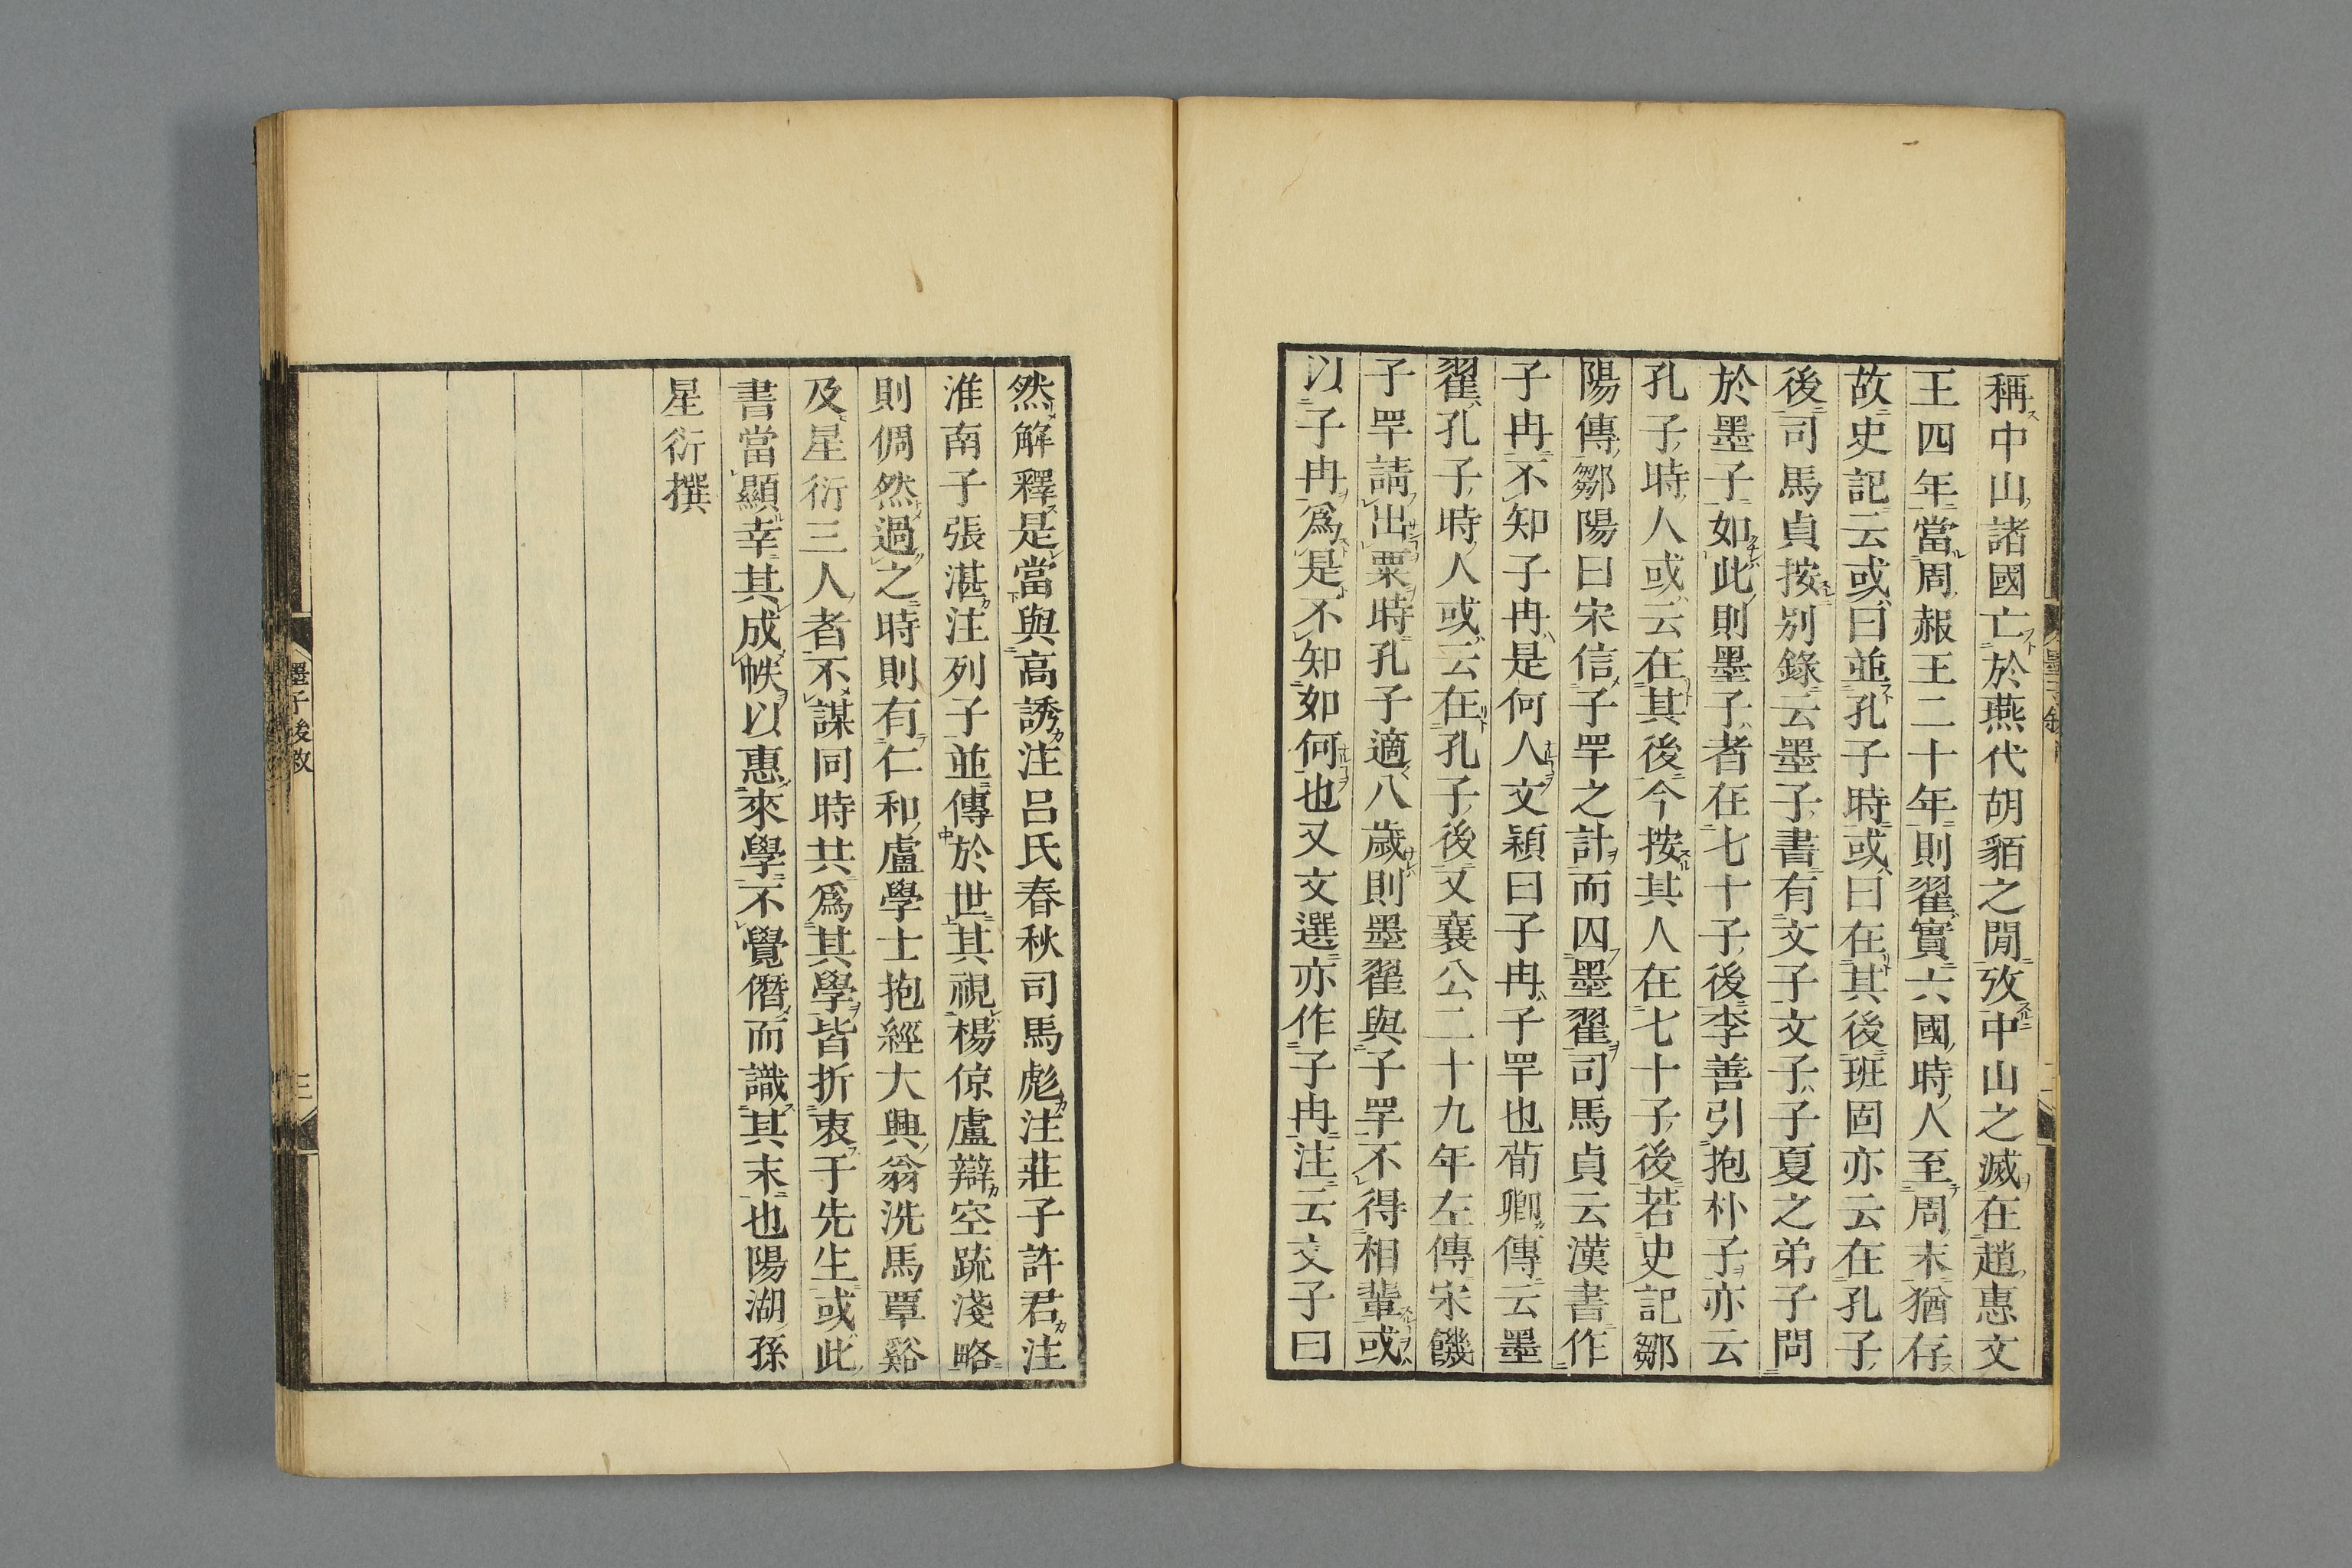 稱中山諸國亡於燕代胡貊之閒攷中山之滅在趙惠文
王四年當周赧王二十年則翟實六國時人至周末猶存
故史記云或曰並孔子時或曰在其後班固亦云在孔子
後司馬貞按别錄云墨子書有文子文子子夏之弟子問
於墨子如此則墨子者在七十子後李善引抱朴子亦云
孔子時人或云在其後今按其人在七十子後若史記鄒
陽傳鄒陽曰宋信子罕之計而囚墨翟司馬貞云漢書作
子冉不知子冉是何人文穎曰子冉子罕也荀卿傳云墨
翟孔子時人或云在孔子後又襄公二十九年左傳宋饑
子罕請出粟時孔子適八歲則墨翟與子罕不得相輩或
以子冉爲是不知如何也又文選亦作子冉注云文子曰
然解釋是當與高誘注呂氏春秋司馬彪注莊子許君注
淮南子張湛注列子並傳於世其視楊倞盧辯空疏淺略
則倜然過之時則有仁和盧學士抱經大興翁洗馬覃谿
及星衍三人者不謀同時共爲其學皆折衷于先生或此
書當顯幸其成帙以惠來學不覺僭而識其末也陽湖孫
星衍撰
墨子後敘
三